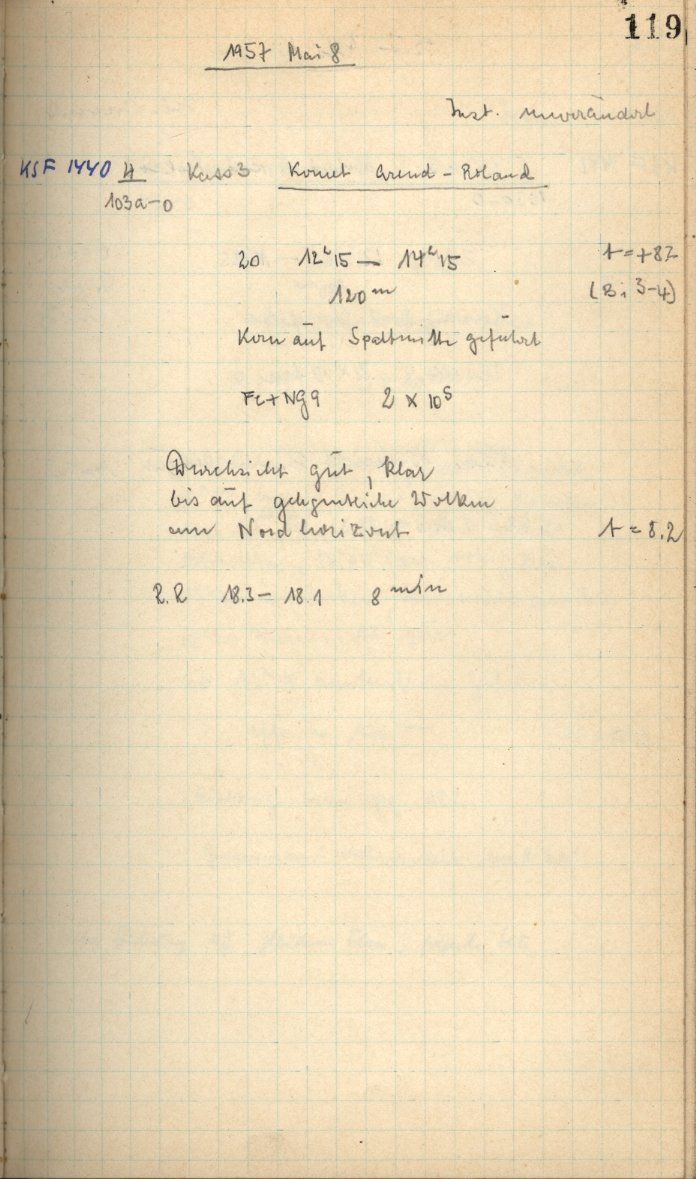 119
1957 Mai 8
Inst. unverändert
KSF 1440 H Kass3 Komet Arend - Roland
103a-O
20 12ʰ15 — 14ʰ15 t = +8.2
120ᵐ (B: 3-4)
Kern auf Spaltmitte geführt
Fe+NG9 2 × 10ˢ
Durchsicht gut, klar
bis auf gelegentliche Wolken
am Nordhorizont t = 8.2
R.R 18.3 - 18.1 8 min